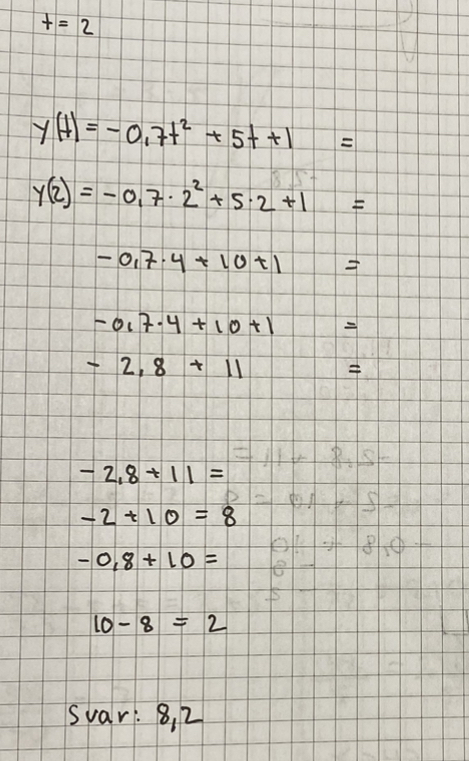 t = 2
y(t) = -0,7t² + 5t + 1 =
y(2) = -0,7 · 2² + 5 · 2 + 1 =
-0,7 · 4 + 10 + 1 =
-0,7 · 4 + 10 + 1 =
- 2,8 + 11 =
-2,8 + 11 =
-2 + 10 = 8
-0,8 + 10 =
10 - 8 = 2
svar: 8,2